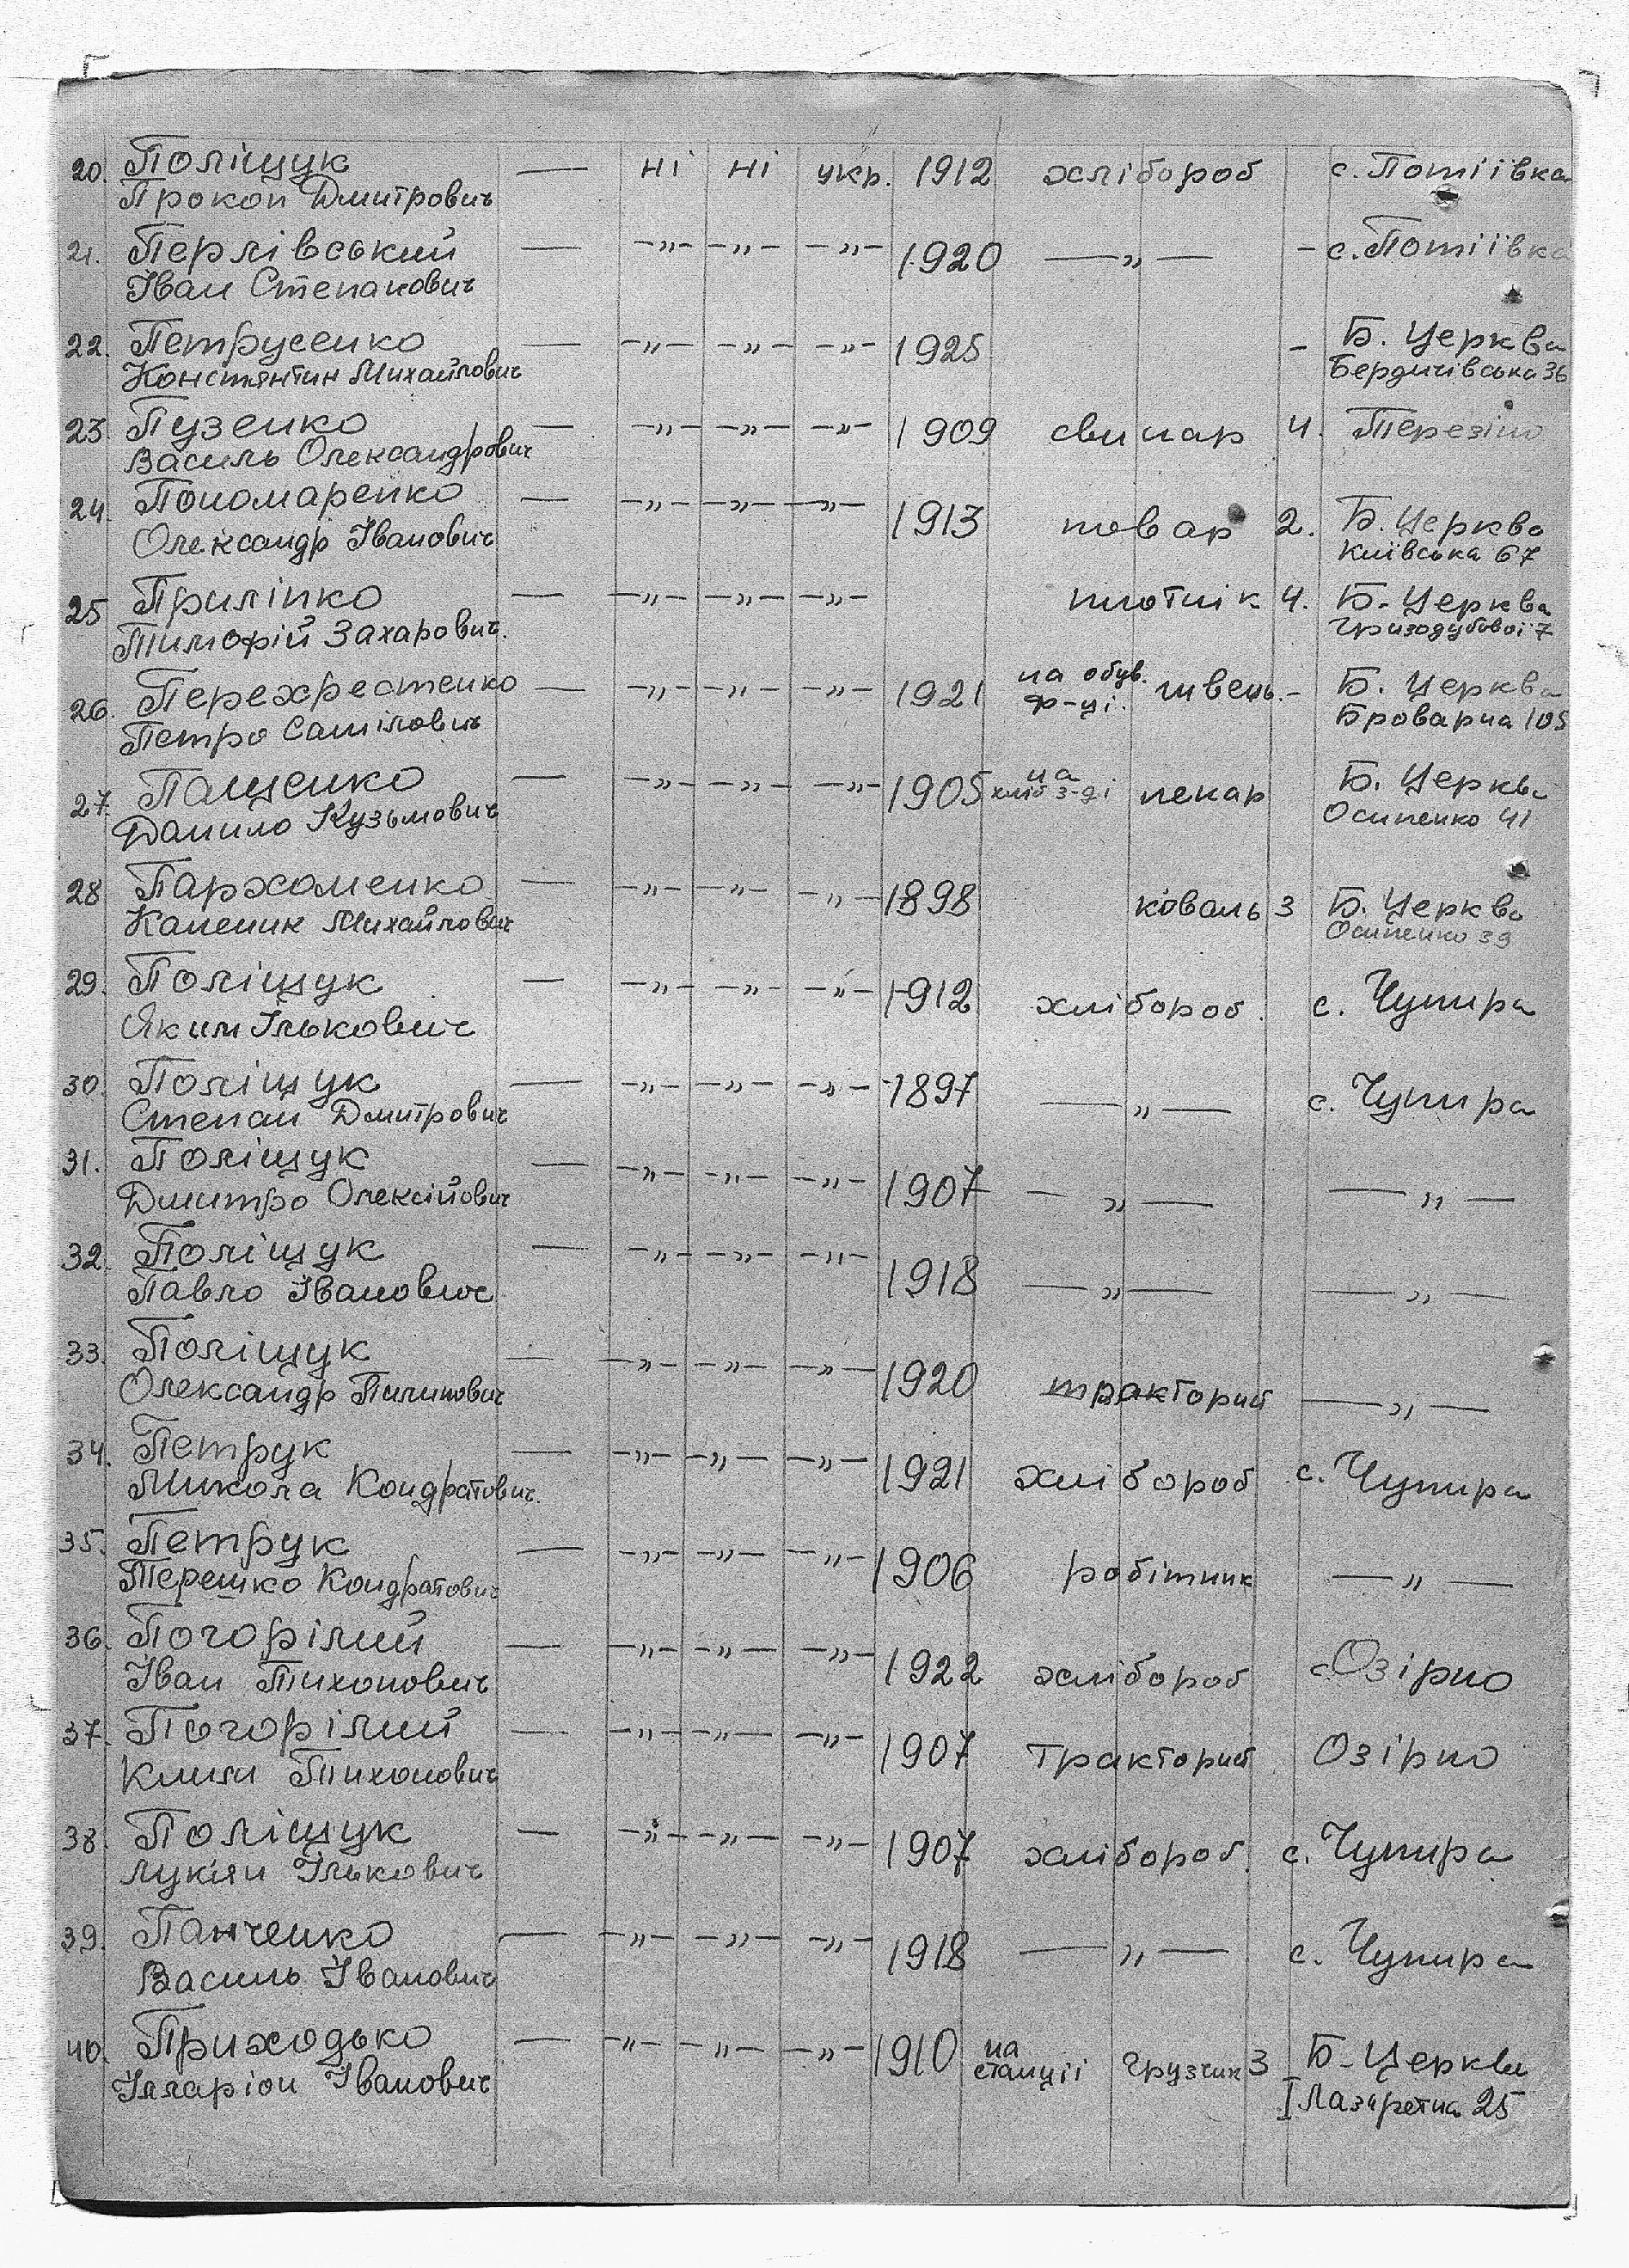 20. Поліщук — ні ні укр. 1912 хлібороб с. Потіївка
Прокоп Дмитрович
21. Перлівський — —"— —"— —"— 1920 —"— - с. Потіївка
Іван Степанович
22. Петрусенко — —"— —"— —"— 1925 - Б. Церква
Констянтин Михайлович Бердичівська 36
23. Пузенко — —"— —"— —"— 1909 свинар 4. Терезіно
Василь Олександрович
24. Пономаренко — —"— —"— —"— 1913 повар 2. Б. Церква
Олександр Іванович Київська 67
25 Приліпко — —"— —"— —"— плотнік 4. Б. Церква
Тимофій Захарович. Гризодубової 7
26. Перехрестенко — —"— —"— —"— 1921 на обув. ф-ці. швець. - Б. Церква
Петро Самілович Броварна 105
27. Пащенко — —"— —"— —"— 1905 на хліб з-ді пекар Б. Церква
Данило Кузьмович Осипенко 41
28 Пархоменко — —"— —"— —"— 1898 коваль 3 Б. Церква
Каленик Михайлович Осипенко 39
29. Поліщук — —"— —"— —"— 1912 хлібороб. с. Чупира
Яким Ількович
30. Поліщук — —"— —"— —"— 1897 —"— с. Чупира
Степан Дмитрович
31. Поліщук — —"— —"— —"— 1907 —"— —"—
Дмитро Олексійович
32. Поліщук — —"— —"— —"— 1918 —"— —"—
Павло Іванович
33. Поліщук — —"— —"— —"— 1920 тракторист —"—
Олександр Пилипович
34. Петрук — —"— —"— —"— 1921 хлібороб с. Чупира
Микола Кондратович.
35. Петрук — —"— —"— —"— 1906 робітник —"—
Терешко Кондратович
36. Погорілий — —"— —"— —"— 1922 хлібороб с. Озірно
Іван Тихонович
37. Погорілий — —"— —"— —"— 1907 тракторист Озірно
Клим Тихонович
38. Поліщук — —"— —"— —"— 1907 хлібороб. с. Чупира
Лукян Ількович
39. Панченко — —"— —"— —"— 1918 —"— с. Чупира
Василь Іванович
40. Приходько — —"— —"— —"— 1910 на станції грузчик 3 Б. Церква
Іларіон Іванович I Лазаретна 25